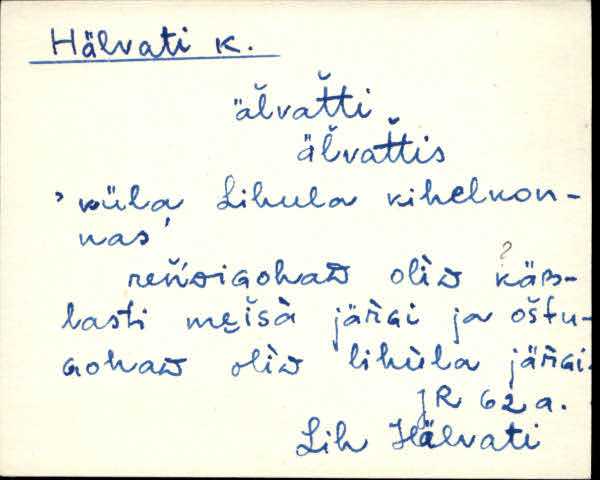 Hälvati k.
älvatti
älvattis
’küla Lihula kihelkon-
nas’
?
olìᴅ
lasti meišà järɢi ja oštu-
ɢohaᴅ olìᴅ lihùla järɢi.
JR 62 a.
Lih Hälvati